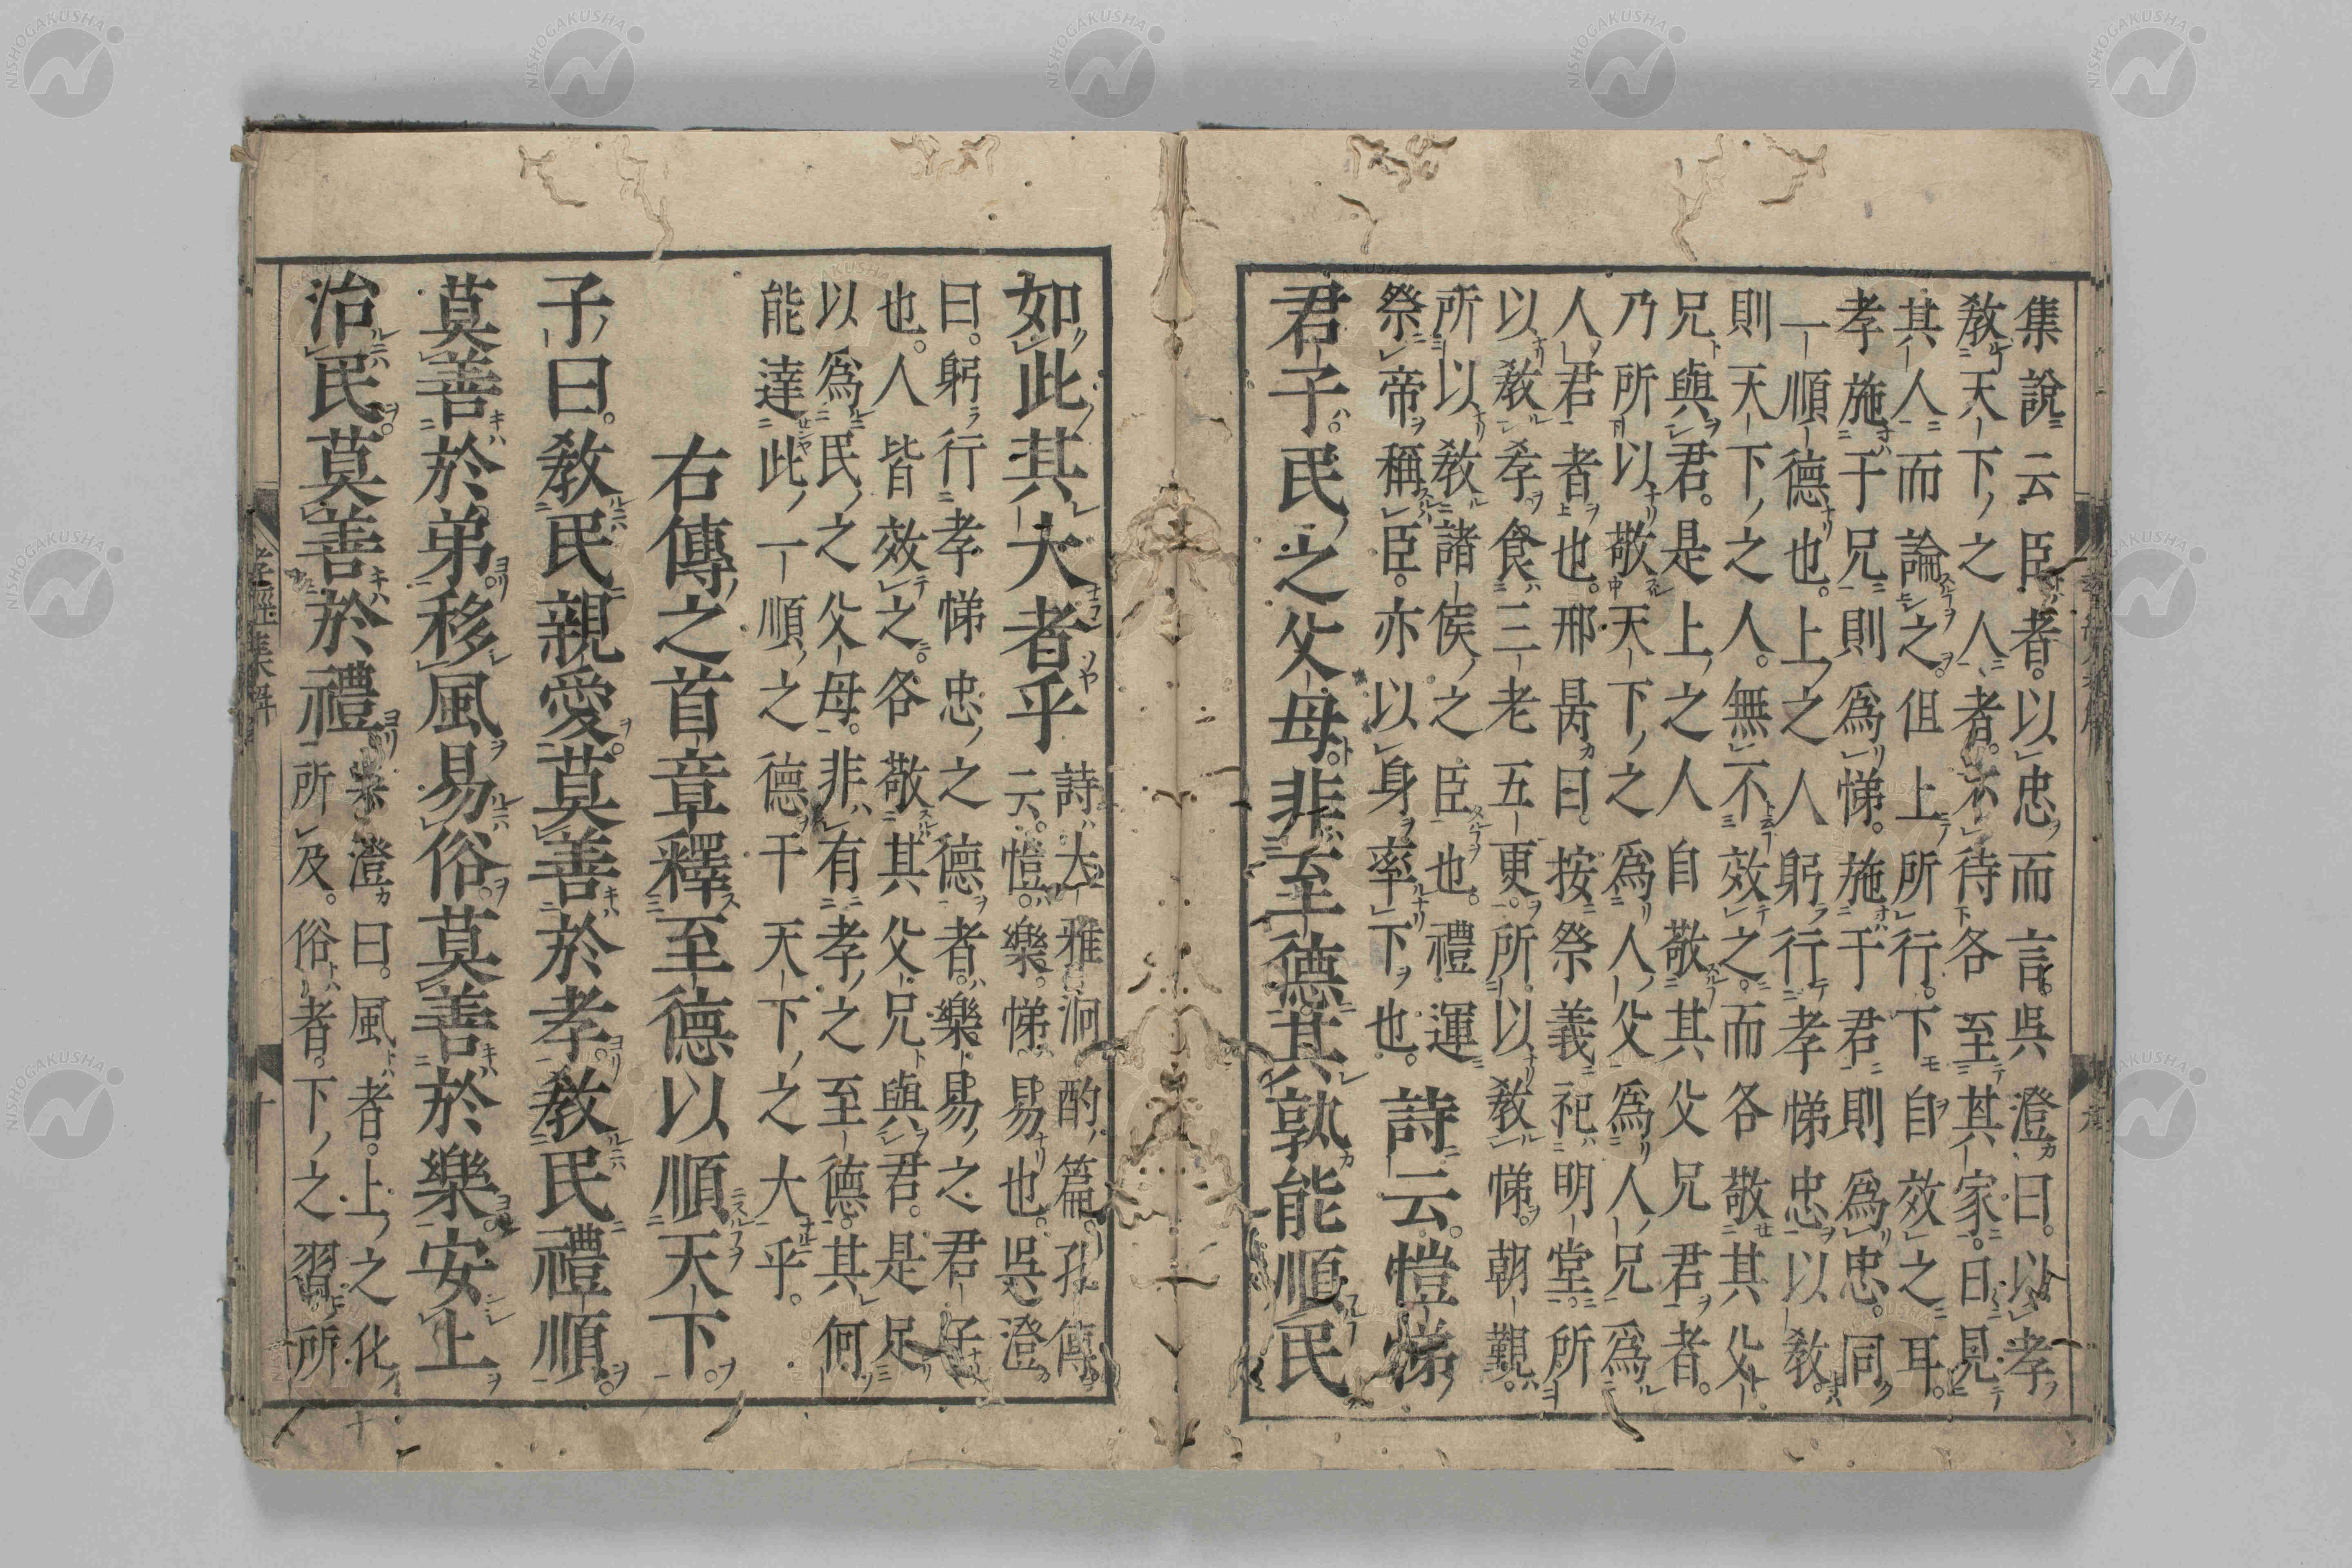 集說云臣者以忠而言吳澄曰以孝
教天下之人者不待各至其家日見
其人而論之但上所行下自效之耳
孝施于兄則爲悌施于君則爲忠同
一順德也上之人躬行孝悌忠以教
則天下之人無不效之而各敬其父
兄與君是上之人自敬其父兄君者
乃所以敬天下之爲人父爲人兄爲
人君者也邢昺曰按祭義祀明堂所
以教孝食三老五更所以教悌朝覲
所以教諸侯之臣也禮運
祭帝稱臣亦以身率下也
詩云愷悌
君子民之父母非至德其孰能順民
如此其大者乎
詩大雅泂酌篇孔傳
云愷樂悌易也吳澄
曰躬行孝悌忠之德者樂易之君子
也人皆效之各敬其父兄與君是足
以爲民之父母非有孝之至德其何
能達此一順之德于天下之大乎
右傳之首章釋至德以順天下
子曰教民親愛莫善於孝教民禮順
莫善於弟移風易俗莫善於樂安上
治民莫善於禮
吳澄曰風者上之化
所及俗者下之習所
孝經集解
十